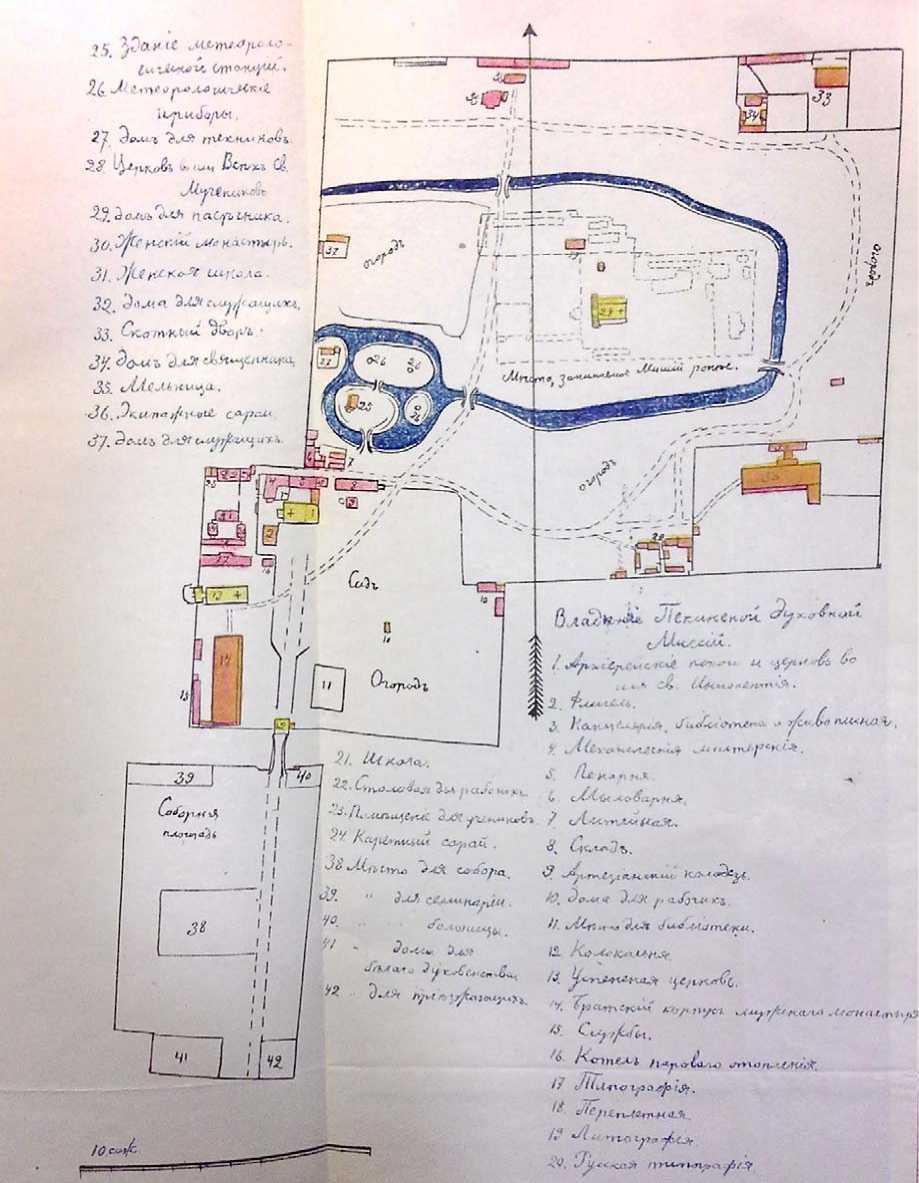 25. Зданіе метеороло-
гической станціи.
26. Метеорологическіе
приборы.
27. Домъ для техниковъ.
28. Церковь во имя Всѣхъ Св.
Мучениковъ
29. Домъ для пасѣчника.
30. Женскій монастырь.
31. Женская школа.
32. Дома для служащихъ.
33. Скотный дворъ.
34. Домъ для священника.
35. Мельница.
36. Экипажные сараи.
37. Домъ для служащихъ.
33
34
32
огородъ
огородъ
28
Мѣсто, занимаемое Миссіей ранѣе.
26
26
25
огородъ
7
Садъ
10
11
Огородъ
14
15
17
16
Владѣніе Пекинской Духовной
Миссіи.
1. Архіерейскіе покои и церковь во
имя св. Иннокентія.
2. Флигель.
3. Канцелярія, библіотека и живописная.
4. Механическія мастерскія.
5. Пекарня.
6. Мыловарня.
7. Литейная.
8. Складъ.
9. Артезіанскій колодезь.
10. Дома для рабочихъ.
11. Мѣсто для библіотеки.
12. Колокольня
13. Успенская церковь.
14. Братскій корпусъ мужскаго монастыря
15. Службы.
16. Котелъ пароваго отопленія.
17. Типографія.
18. Переплетная
19. Литографія.
20. Русская типографія
21. Школа.
22. Столовая для рабочихъ
23. Помѣщеніе для учениковъ.
24. Каретный сарай.
38 Мѣсто для собора.
39. " для семинаріи.
40. " " больницы.
41 " дома для
бѣлаго духовенства
42 " для пріѣзжающихъ
39
40
Соборная
площадь
38
41
42
10 саж